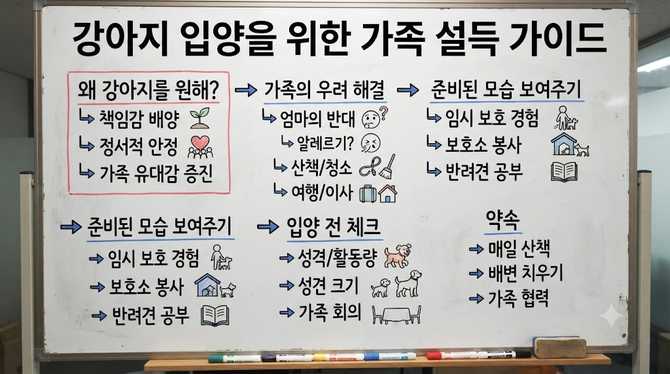 강아지 입양을 위한 가족 설득 가이드
왜 강아지를 원해?
책임감 배양
정서적 안정
가족 유대감 증진
가족의 우려 해결
엄마의 반대
알레르기?
산책/청소
여행/이사
준비된 모습 보여주기
임시 보호 경험
보호소 봉사
반려견 공부
준비된 모습 보여주기
임시 보호 경험
보호소 봉사
반려견 공부
입양 전 체크
성격/활동량
성견 크기
가족 회의
약속
매일 산책
배변 치우기
가족 협력